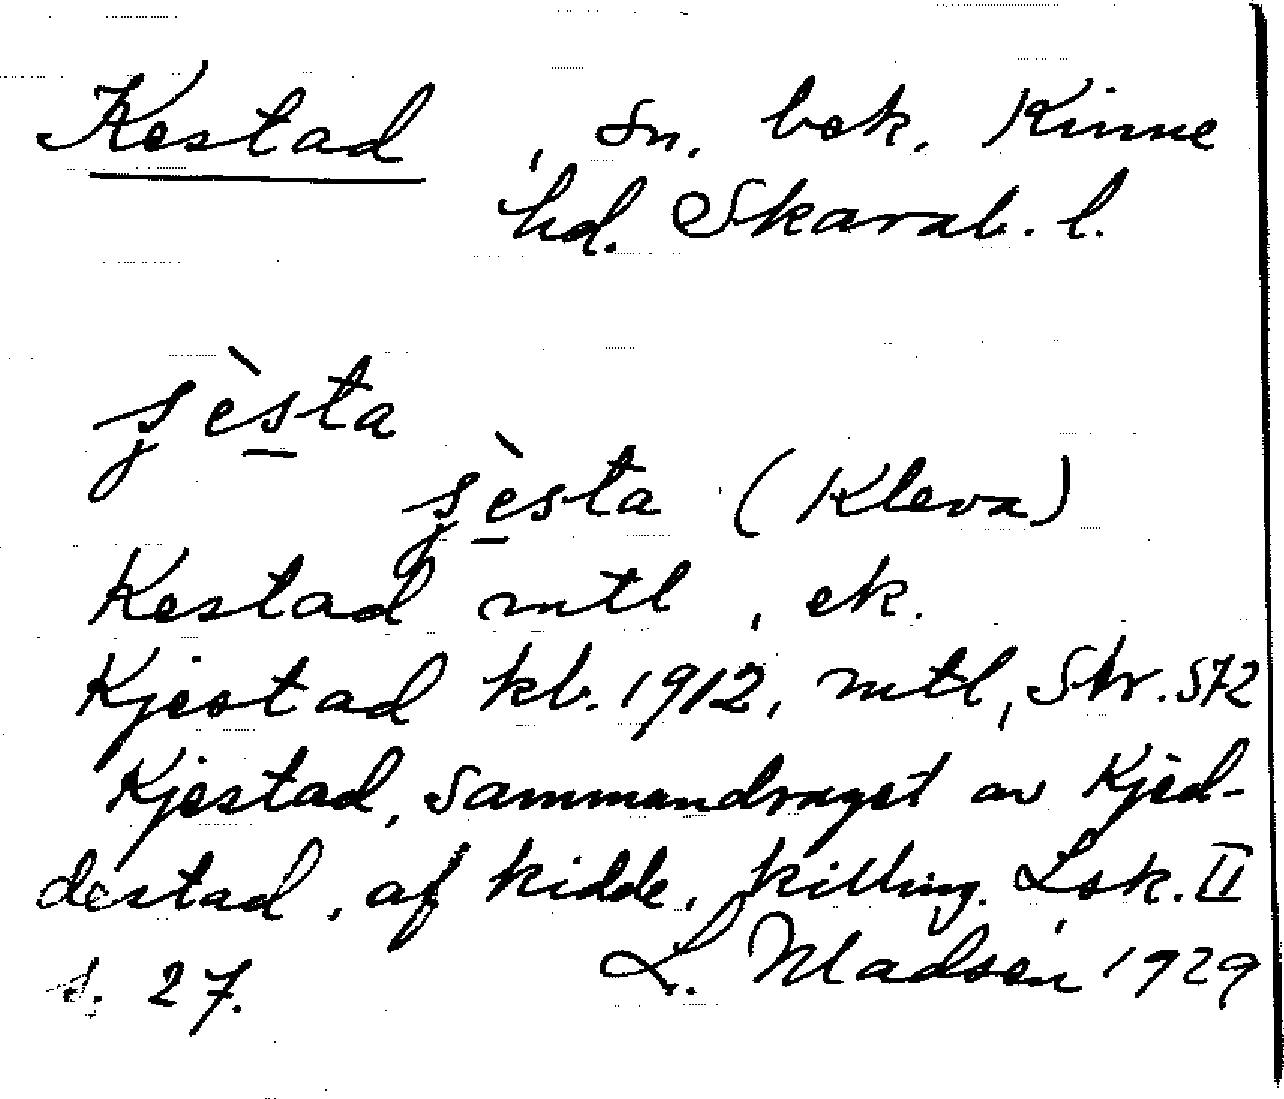 Kestad, sn. bek. Kinne
hd. Skarab. l.
ʂèsta
ʂèsta (Kleva)
Kestad mtl, ek.
Kjestad kb. 1912, mtl, Skr. 572
Kjestad, sammandraget av Kjed-
destad, af kidde, killing. Lsk. II
s. 27. L. Madsén 1929